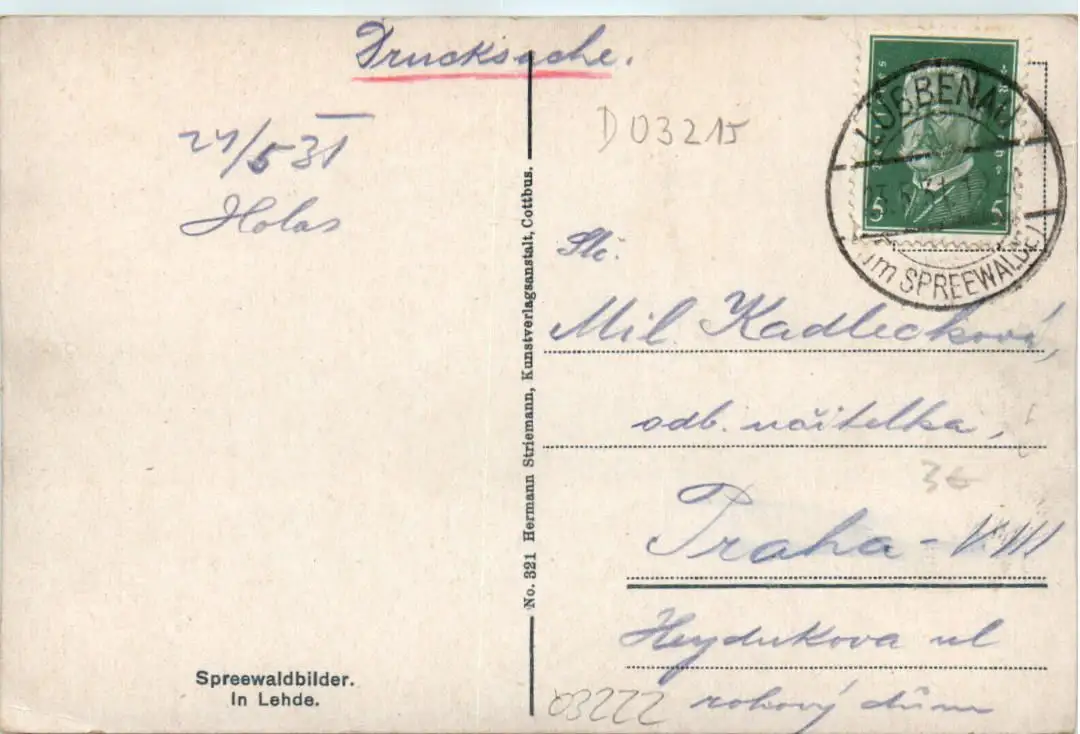 Drucksache.
D 03215
24/5 31
Holas
LÜBBENAU
(im SPREEWALDE)
5 5
Slč.
Mil. Kadlecková,
odb. učitelka,
3€
Praha - VIII
Heydukova ul
rohový dům
03222
No. 321 Hermann Striemann, Kunstverlagsanstalt, Cottbus.
Spreewaldbilder.
In Lehde.